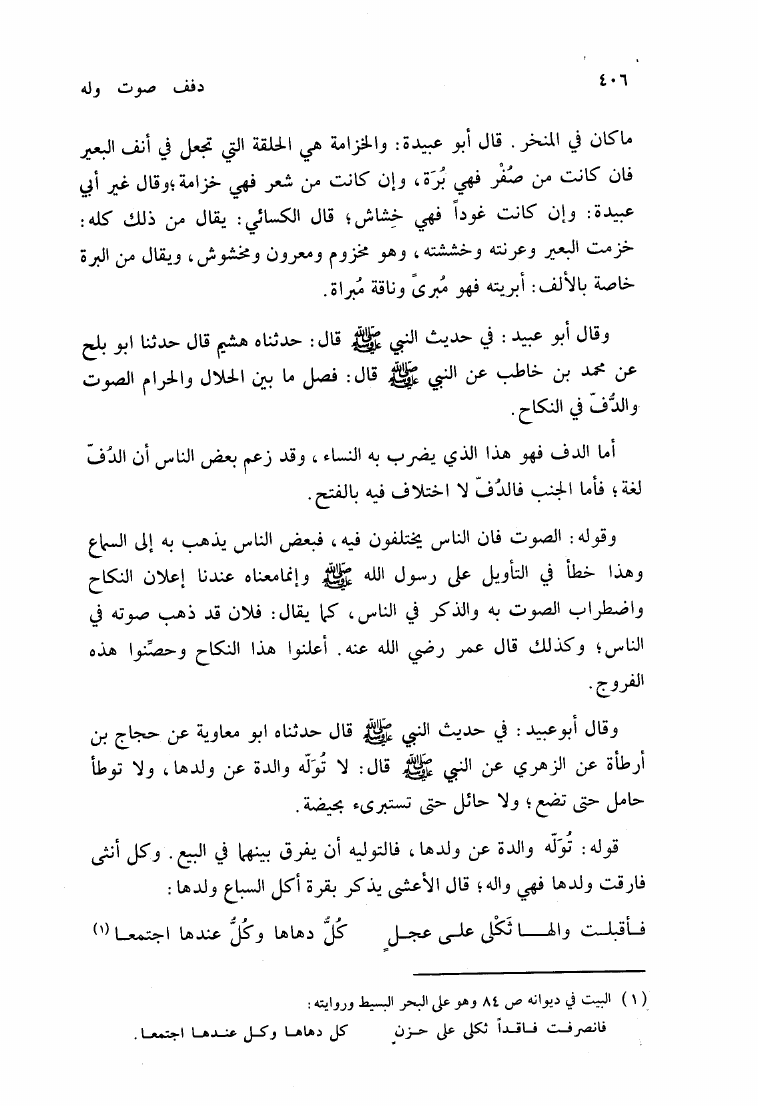 ٤٠٦
دفف صوت وله
ماكان في المنخر. قال أبو عبيدة: والخزامة هي الحلقة التي تجعل في أنف البعير
فان كانت من صُفْر فهي بُرَة، وإن كانت من شعر فهي خزامة؛وقال غير أبي
عبيدة: وإن كانت غوداً فهي خِشاش؛ قال الكسائي: يقال من ذلك كله:
خزمت البعير وعرنته وخششته، وهو مخزوم ومعرون ومخشوش، ويقال من البرة
خاصة بالألف: أبريته فهو مُبرىً وناقة مُبراة.
وقال أبو عبيد: في حديث النبي ﷺ قال: حدثناه هشيم قال حدثنا ابو بلح
عن محمد بن خاطب عن النبي ﷺ قال: فصل ما بين الحلال والحرام الصوت
والدُّفّ في النكاح.
أما الدف فهو هذا الذي يضرب به النساء، وقد زعم بعض الناس أن الدُفّ
لغة؛ فأما الجنب فالدُفّ لا اختلاف فيه بالفتح.
وقوله: الصوت فان الناس يختلفون فيه، فبعض الناس يذهب به إلى السماع
وهذا خطأ في التأويل على رسول الله ﷺ وإنمامعناه عندنا إعلان النكاح
واضطراب الصوت به والذكر في الناس، كما يقال: فلان قد ذهب صوته في
الناس؛ وكذلك قال عمر رضي الله عنه. أعلنوا هذا النكاح وحصِّنوا هذه
الفروج.
وقال أبوعبيد: في حديث النبي ﷺ قال حدثناه ابو معاوية عن حجاج بن
أرطأة عن الزهري عن النبي ﷺ قال: لا تُوَلّه والدة عن ولدها، ولا توطأ
حامل حتى تضع؛ ولا حائل حتى تستبرىء بحيضة.
قوله: تُوَلّه والدة عن ولدها، فالتوليه أن يفرق بينهما في البيع. وكل أنثى
فارقت ولدها فهي واله؛ قال الأعشى يذكر بقرة أكل السباع ولدها:
فـأقبلـت والهـا ثَكْلى علـى عجـلٍ كُلُّ دهاها وكُلُّ عندها اجتمعـا (١)
(١) البيت في ديوانه ص ٨٤ وهو على البحر البسيط وروايته:
فانصرفـت فـاقـداً ثكلى على حـزنٍ كل دهاهـا وكـل عنـدهـا اجتمعـا.